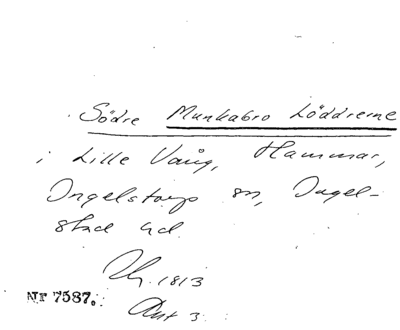 Södre Munkabro Löddrerne
i Lille Vång, Hammar,
Ingelstorps sn, Ingel-
stad hd.
1813
Nr 7587.
Akt 3